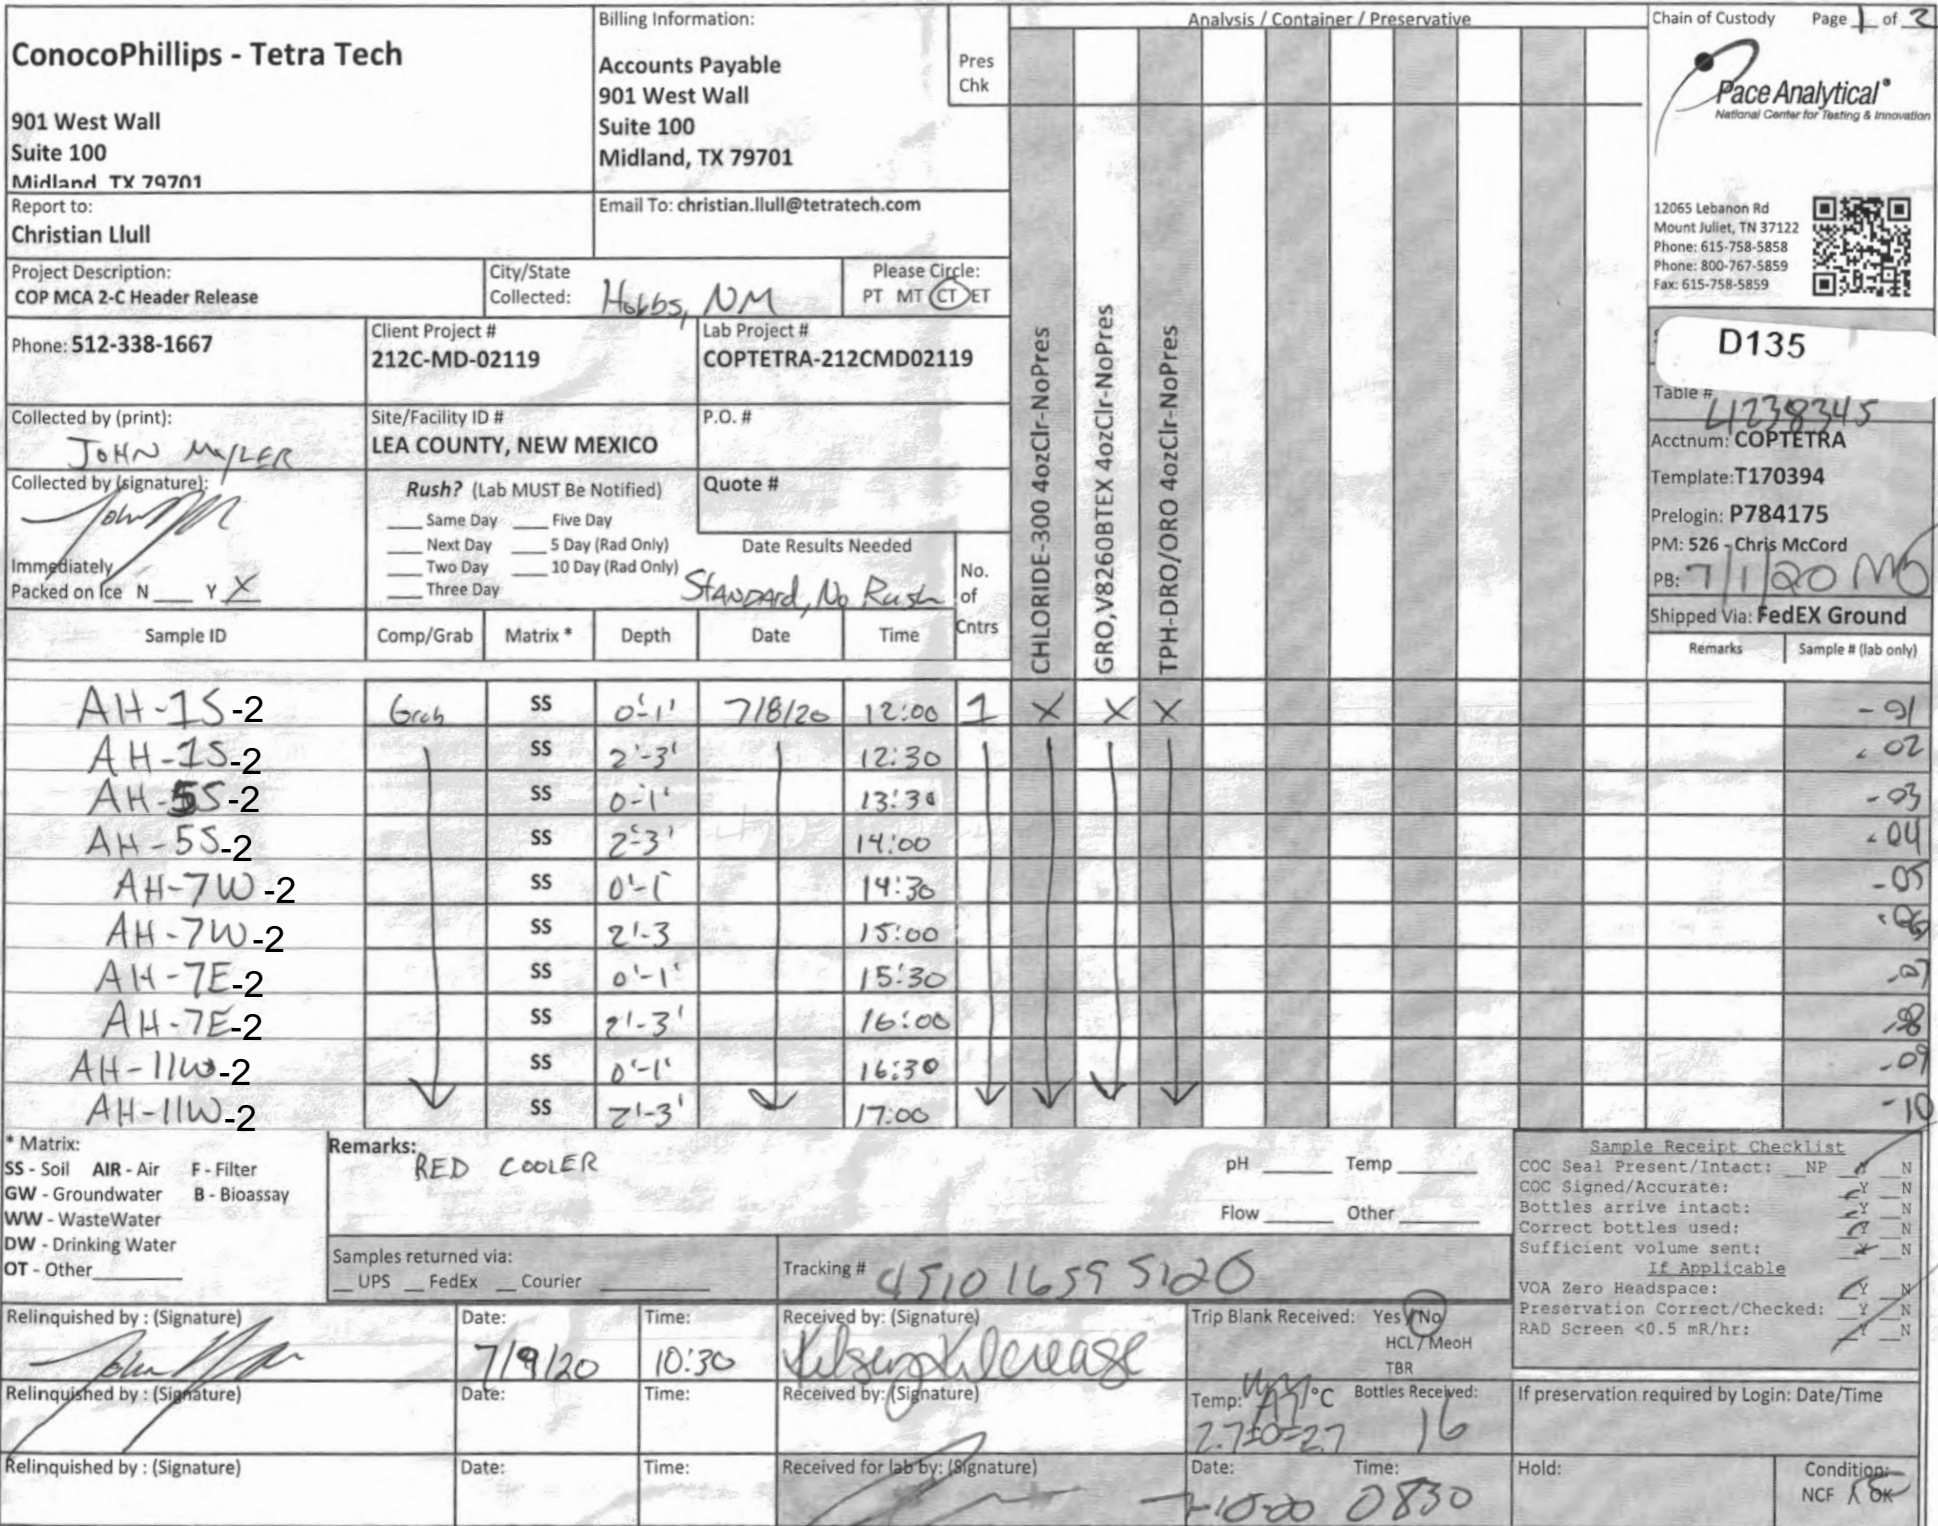 ConocoPhillips - Tetra Tech
901 West Wall
Suite 100
Midland, TX 79701
Billing Information:
Accounts Payable
901 West Wall
Suite 100
Midland, TX 79701
Pres
Chk
Analysis / Container / Preservative
Chain of Custody Page 1 of 2
Pace Analytical®
National Center for Testing & Innovation
12065 Lebanon Rd
Mount Juliet, TN 37122
Phone: 615-758-5858
Phone: 800-767-5859
Fax: 615-758-5859
Report to:
Christian Llull
Email To: christian.llull@tetratech.com
Project Description:
COP MCA 2-C Header Release
City/State
Collected: Hobbs, NM
Please Circle:
PT MT CT ET
Phone: 512-338-1667
Client Project #
212C-MD-02119
Lab Project #
COPTETRA-212CMD02119
Collected by (print):
JOHN MYLER
Site/Facility ID #
LEA COUNTY, NEW MEXICO
P.O. #
Collected by (signature):
Immediately
Packed on Ice N ___ Y X
Rush? (Lab MUST Be Notified)
___ Same Day ___ Five Day
___ Next Day ___ 5 Day (Rad Only)
___ Two Day ___ 10 Day (Rad Only)
___ Three Day
Quote #
Date Results Needed
STANDARD, No Rush
No.
of
Cntrs
CHLORIDE-300 4ozClr-NoPres
GRO,V8260BTEX 4ozClr-NoPres
TPH-DRO/ORO 4ozClr-NoPres
D135
Table #
L1238345
Acctnum: COPTETRA
Template:T170394
Prelogin: P784175
PM: 526 - Chris McCord
PB: 7/1/20
Shipped Via: FedEX Ground
Remarks Sample # (lab only)
Sample ID Comp/Grab Matrix * Depth Date Time
AH-1S-2 Grab SS 0'-1' 7/8/20 12:00 1 X X X -01
AH-1S-2 SS 2'-3' 12:30 -02
AH-5S-2 SS 0-1' 13:30 -03
AH-5S-2 SS 2'-3' 14:00 -04
AH-7W-2 SS 0'-1' 14:30 -05
AH-7W-2 SS 2'-3 15:00 -06
AH-7E-2 SS 0'-1' 15:30 -07
AH-7E-2 SS 2'-3' 16:00 -08
AH-11W-2 SS 0'-1' 16:30 -09
AH-11W-2 SS 2'-3' 17:00 -10
* Matrix:
SS - Soil AIR - Air F - Filter
GW - Groundwater B - Bioassay
WW - WasteWater
DW - Drinking Water
OT - Other
Remarks:
RED COOLER
pH ___ Temp ___
Flow ___ Other ___
Samples returned via:
__ UPS __ FedEx __ Courier
Tracking # 4510 1659 5120
Sample Receipt Checklist
COC Seal Present/Intact: __NP Y __N
COC Signed/Accurate: Y __N
Bottles arrive intact: Y __N
Correct bottles used: Y __N
Sufficient volume sent: Y __N
If Applicable
VOA Zero Headspace: Y __N
Preservation Correct/Checked: Y __N
RAD Screen <0.5 mR/hr: Y __N
Relinquished by : (Signature)
Date:
7/9/20
Time:
10:30
Received by: (Signature)
Kelsey Kilcrease
Trip Blank Received: Yes / No
HCL / MeoH
TBR
Relinquished by : (Signature)
Date:
Time:
Received by: (Signature)
Temp: °C Bottles Received:
2.7±0=2.7 16
If preservation required by Login: Date/Time
Relinquished by : (Signature)
Date:
Time:
Received for lab by: (Signature)
Date: Time:
7-10-20 0830
Hold:
Condition:
NCF / OK